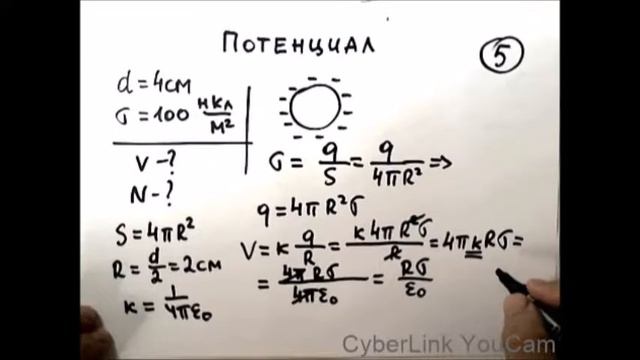 ПОТЕНЦИАЛ
5
d = 4см
σ = 100 нКл/м²
V - ?
N - ?
σ = q/S = q/4πR² ⇒
q = 4πR²σ
S = 4πR²
R = d/2 = 2см
k = 1/4πε₀
V = k q/R = k4πR²σ/R = 4πkRσ =
= 4πRσ/4πε₀ = Rσ/ε₀
CyberLink YouCam